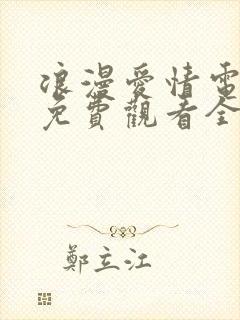 浪漫愛情電
免費觀看全
鄭立江